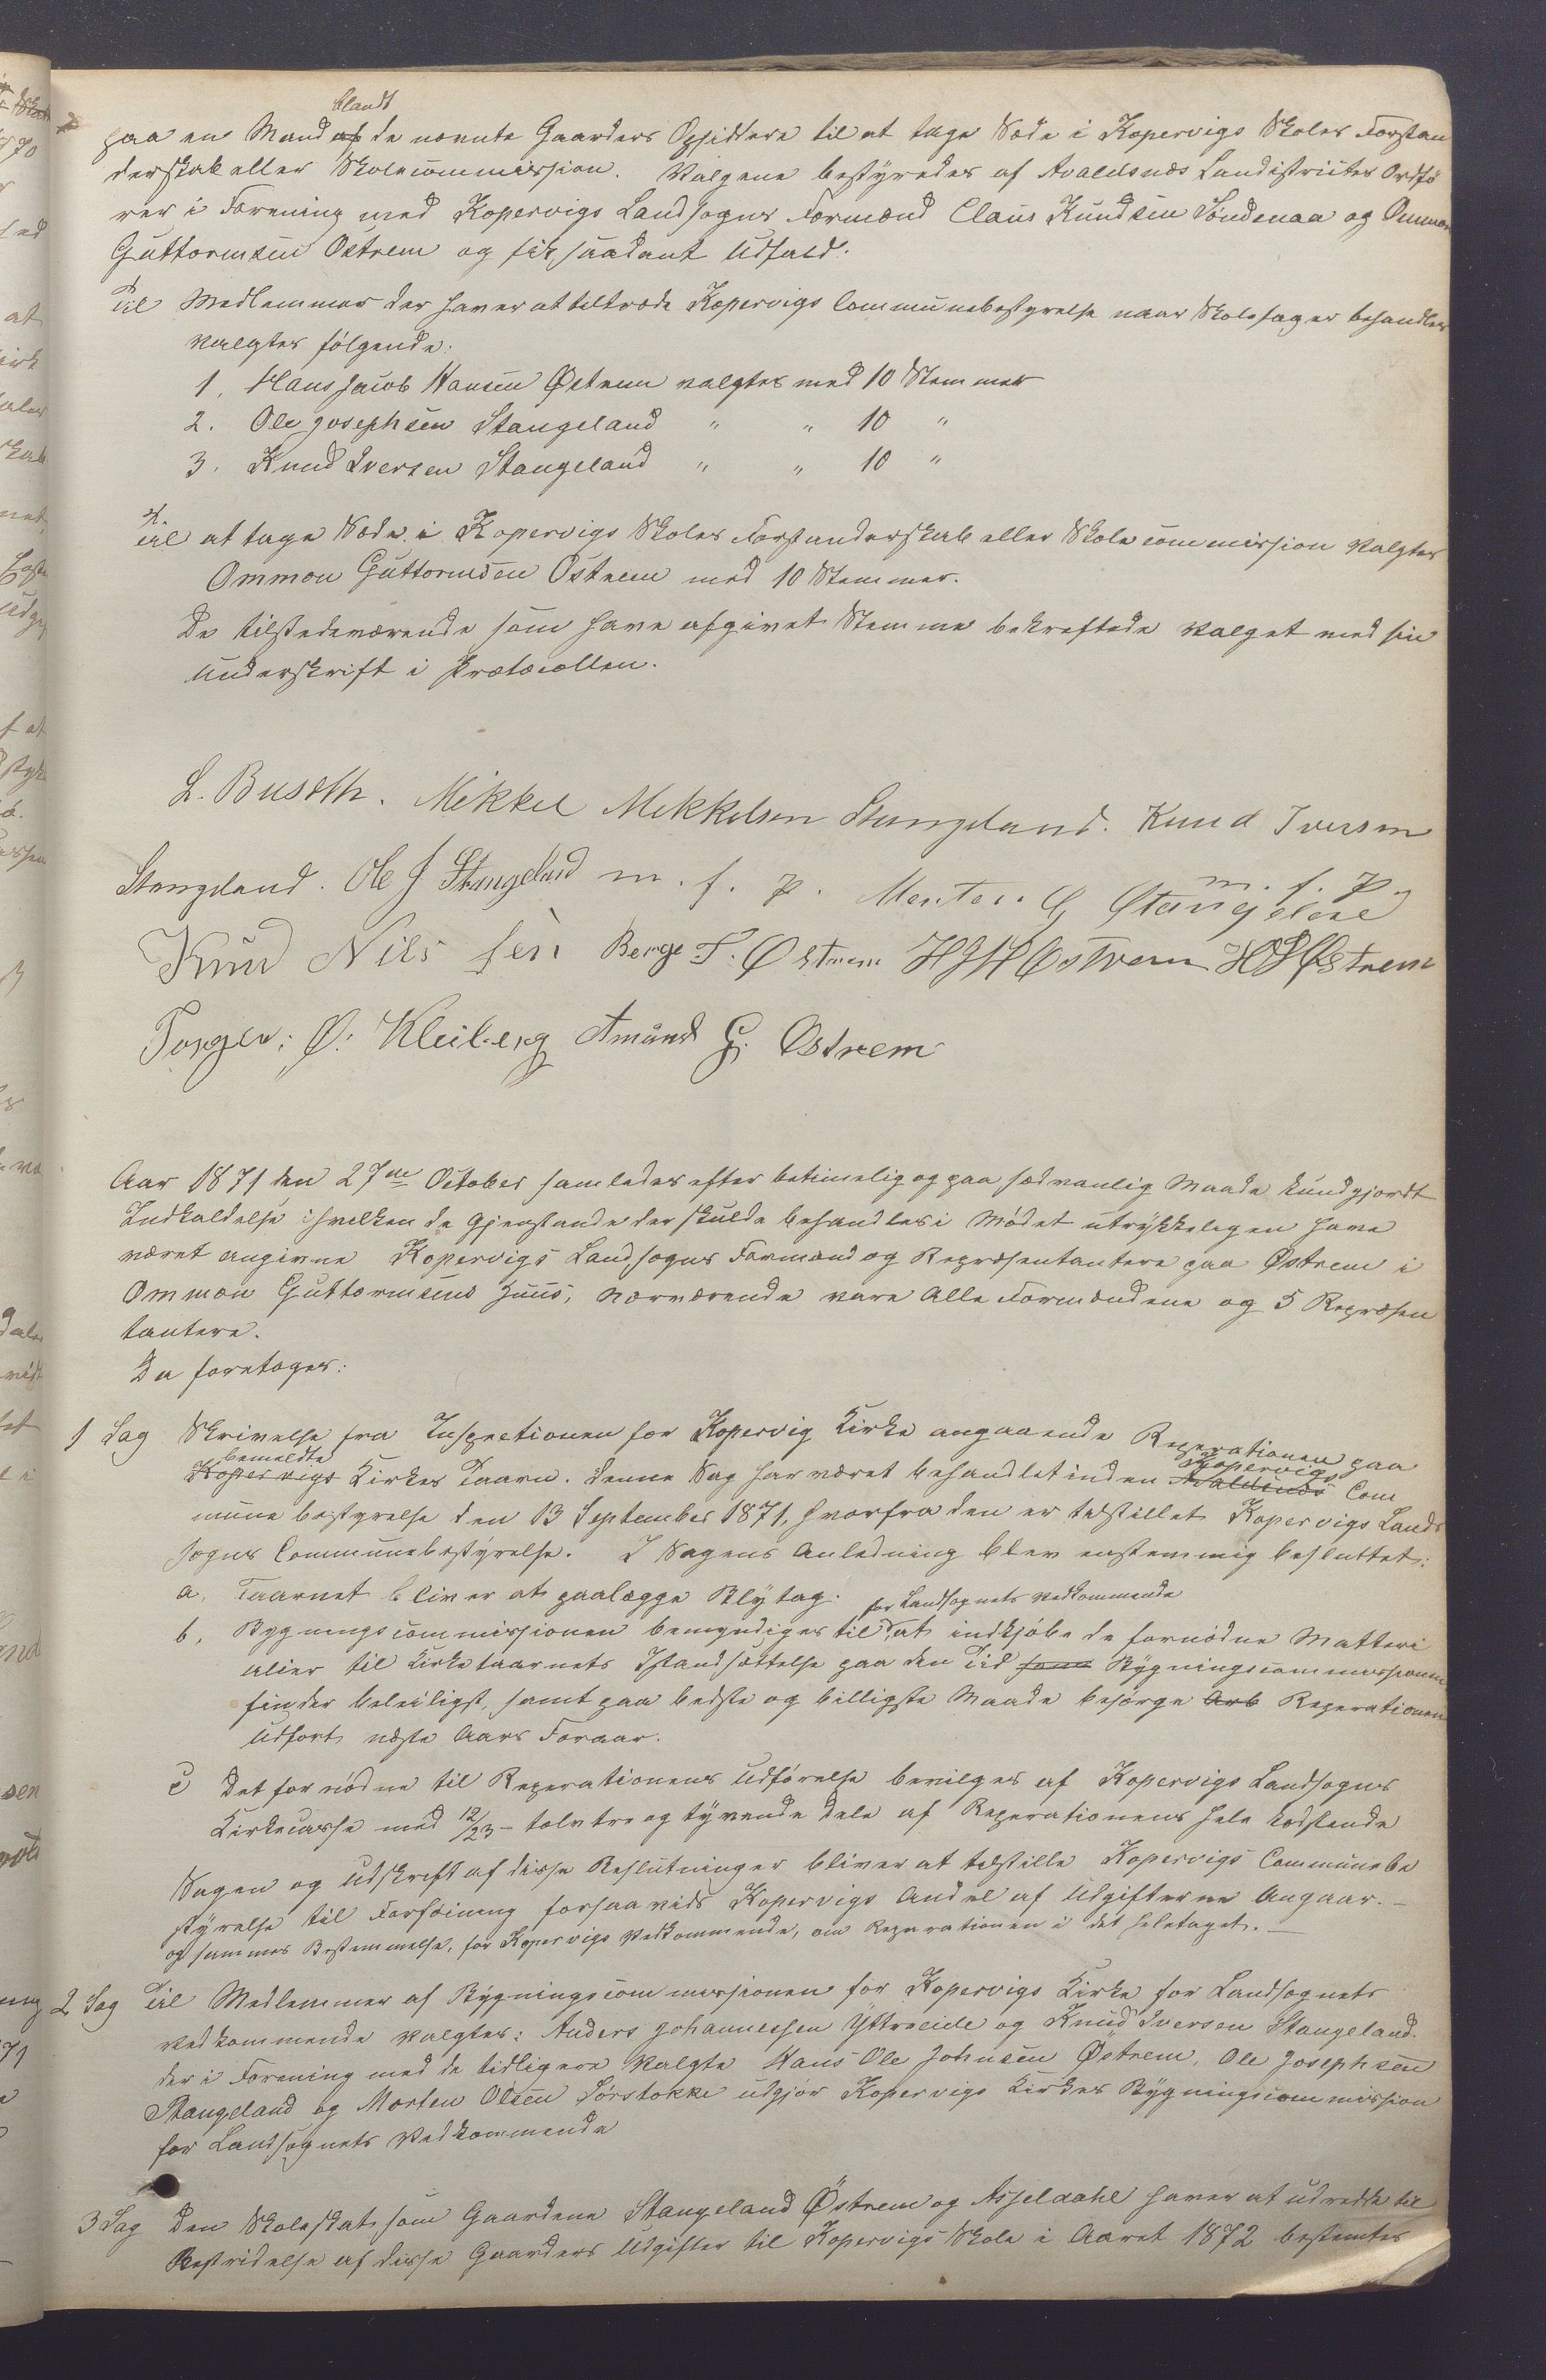 blandt
paa en Mand af de nævnte Gaarders Opsiddere til at tage Sæde i Kopervigs Skoles Forstan
derskab eller Skolecommission. Valgene bestyredes af Avaldsnæs Landistricts Ordfö
rer i Forening med Kopervigs Landsogns Formænd Claus Knudsen Söndenaa og Ommon
Guttormsen Östrem og fik saadant Udfald:
Til Medlemmer der haver at tiltræde Kopervigs Communebestyrelse naar Skolesager behandles
valgtes fölgende:
1. Hans Jacob Hansen Østrem valgtes med 10 Stemmer
2. Ole Josephsen Stangeland " " 10 "
3. Knud Iversen Stangeland " " 10 "
Til at tage Sæde i Kopervigs Skoles Forstanderskab eller Skolecommission valgtes
Ommon Guttormsen Östrem med 10 Stemmer.
De tilstedeværende som have afgivet Stemme bekræftede Valget med sin
Underskrift i Protocollen.
L. Buseth. Mikkel Mikkelsen Stangeland. Knud Iversen
Stangeland. Ole J Stangeland m. f. p. m. f. p.
Knud Nils sen Berge T. Østrem HJH Østrem HOJ Østrem
Torger; Ø: Kleiberg Amund G. Østrem
Aar 1871 den 27de October samledes efter betimelig og paa sædvanlig Maade kundgjordt
Indkaldelse i hvilken de Gjenstande der skulde behandles i Mödet utrykkelegen have
været angivne Kopervigs Landsogns Formænd og Repræsentantere paa Østrem i
Ommon Guttormsens Huus, nærværende vare Alle Formændene og 5 Repræsen
tantere.
Da foretoges:
1 Sag Skrivelse fra Inspectionen for Kopervig Kirke angaaende Reperationen paa
bemeldte Kopervigs
Kopervigs Kirkes Taarn. Denne Sag har været behandlet inden Avaldsnæs Com
munebestyrelse den 13 September 1871, hvorfra den er tilstillet Kopervigs Lands
sogns Communebestyrelse. I Sagens Anledning blev enstemmig besluttet:
a. Taarnet bliver at paalægge Blytag.
for Landsognets Vedkommende
b. Bygningscommissionen bemyndiges til at indkjöbe de fornödne Matteri
alier til Kirketaarnets Istandsættelse paa den Tid som Bygningscommissionen
finder beleiligst, samt paa bedste og billigste Maade besörge Arb Reperationen
Udfört næste Aars Foraar.
c Det fornödne til Reperationens Udförelse bevilges af Kopervigs Landsogns
Kirkecasse med 12/23 - tolv treogtyvende dele af Reperationens hele kostende
Sagen og Udskrift af disse Beslutninger bliver at tilstille Kopervigs Communebe
styrelse til Forföining forsaavidt Kopervigs Andel af Udgifterne Angaar. -
og sammes Bestemmelse, for Kopervigs Vedkommende, om Reperationen i det heletaget. -
2 Sag Til Medlemmer af Bygningscommissionen for Kopervigs Kirke for Landsognets
Vedkommende valgtes: Anders Johannessen Yttreeide og Knud Iversen Stangeland.
der i Forening med de tidligere valgte Hans Ole Johnsen Östrem, Ole Josephsen
Stangeland og Morten Olsen Sörstokke udgjör Kopervigs Kirkes Bygningscommission
for Landsognets Vedkommende
3 Sag Den Skoleskat som Gaardene Stangeland Östrem og Asseldahl haver at udrede til
Bestridelse af disse Gaarders Udgifter til Kopervigs Skole i Aaret 1872 bestemtes